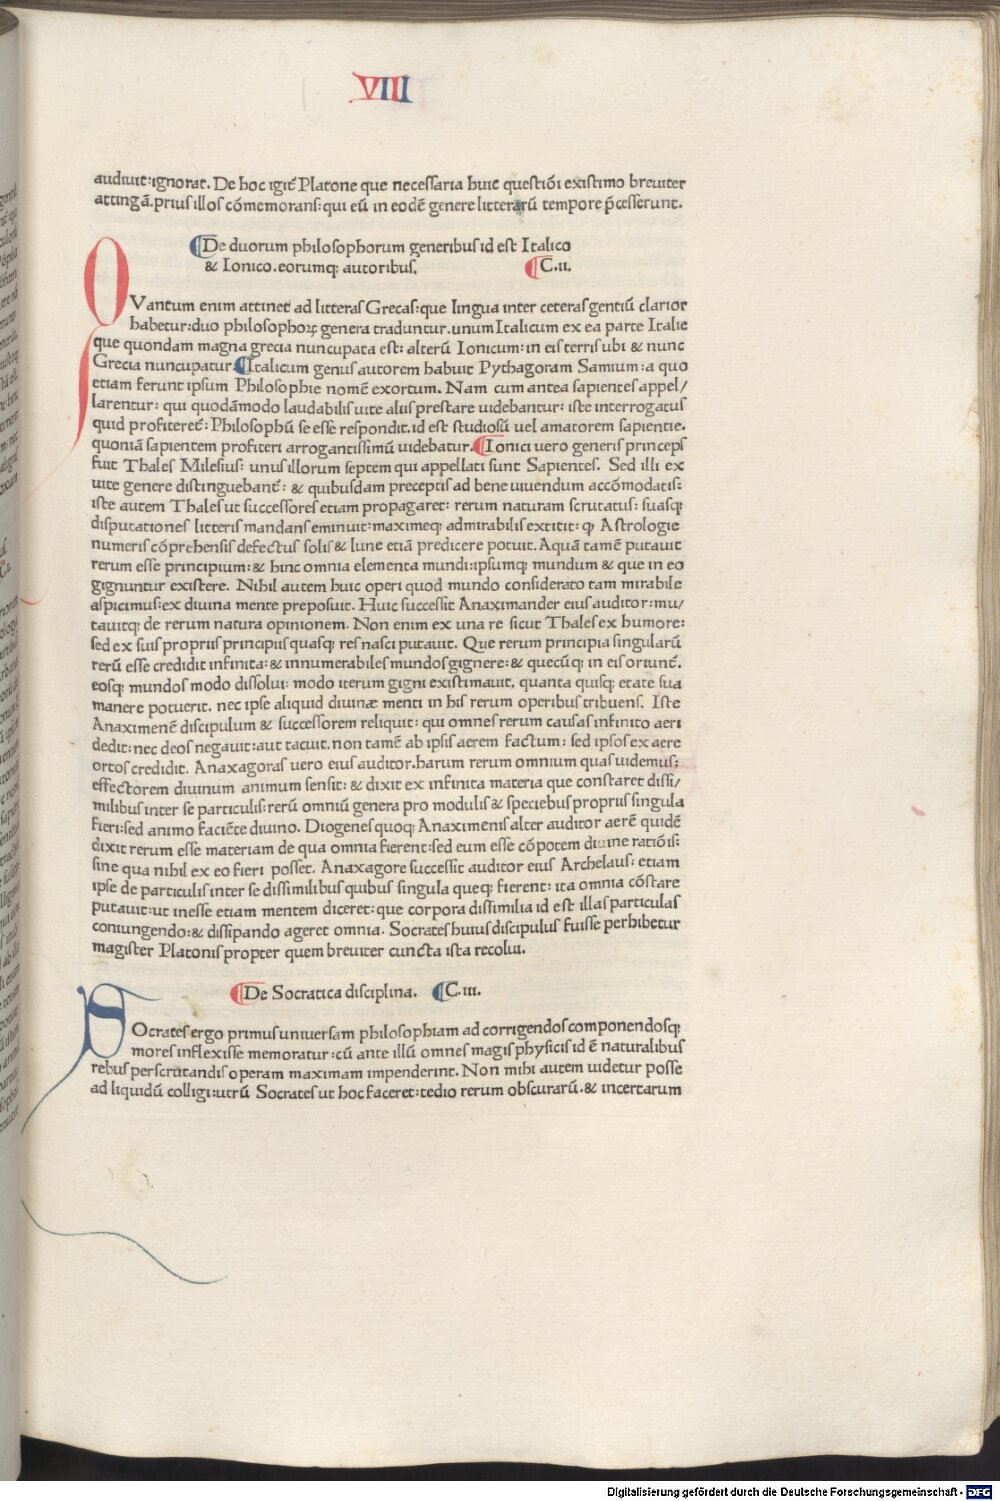 VIII
audiuit:ignorat. De hoc igit̃ Platone que necessaria huic questiõi existimo breuiter
attingã.prius illos cõmemorans:qui eũ in eodẽ genere litterarũ tempore p̃cesserunt.
De duorum philosophorum generibus id est Italico
& Ionico.eorumq; autoribus. C.ii.
QVantum enim attinet ad litteras Grecas:que lingua inter ceteras gentiũ clarior
habetur:duo philosophoꝝ genera traduntur.unum Italicum ex ea parte Italie
que quondam magna grecia nuncupata est: alterũ Ionicum:in eis terris ubi & nunc
Grecia nuncupatur. Italicum genus autorem habuit Pythagoram Samium:a quo
etiam ferunt ipsum Philosophie nomẽ exortum. Nam cum antea sapientes appel/
larentur: qui quodãmodo laudabilis uite aliis prestare uidebantur: iste interrogatus
quid profiteret̃: Philosophũ se esse respondit.id est studiosũ uel amatorem sapientie.
quoniã sapientem profiteri arrogantissimũ uidebatur. Ionici uero generis princeps
fuit Thales Milesius: unus illorum septem qui appellati sunt Sapientes. Sed illi ex
uite genere distinguebant̃: & quibusdam preceptis ad bene uiuendum accõmodatis:
iste autem Thales ut successores etiam propagaret: rerum naturam scrutatus: suasq;
disputationes litteris mandans eminuit:maximeq; admirabilis extitit: ꝙ Astrologie
numeris cõprehensis defectus solis & lune etiã predicere potuit. Aquã tamẽ putauit
rerum esse principium:& hinc omnia elementa mundi:ipsumq; mundum & que in eo
gignuntur existere. Nihil autem huic operi quod mundo considerato tam mirabile
aspicimus:ex diuina mente preposuit. Huic successit Anaximander eius auditor:mu/
tauitq; de rerum natura opinionem. Non enim ex una re sicut Thales ex humore:
sed ex suis propriis principiis quasq; res nasci putauit. Que rerum principia singularũ
rerũ esse credidit infinita: & innumerabiles mundos gignere:& quecũq; in eis oriunt̃.
eosq; mundos modo dissolui: modo iterum gigni existimauit. quanta quisq; etate sua
manere potuerit. nec ipse aliquid diuinæ menti in his rerum operibus tribuens. Iste
Anaximenẽ discipulum & successorem reliquit: qui omnes rerum causas infinito aeri
dedit:nec deos negauit:aut tacuit.non tamẽ ab ipsis aerem factum: sed ipsos ex aere
ortos credidit. Anaxagoras uero eius auditor.harum rerum omnium quas uidemus:
effectorem diuinum animum sensit: & dixit ex infinita materia que constaret dissi/
milibus inter se particulis:rerũ omniũ genera pro modulis & speciebus propriis singula
fieri:sed animo faciẽte diuino. Diogenes quoq; Anaximenis alter auditor aerẽ quidẽ
dixit rerum esse materiam de qua omnia fierent:sed eum esse cõpotem diuine ratiõis:
sine qua nihil ex eo fieri posset. Anaxagore successit auditor eius Archelaus: etiam
ipse de particulis inter se dissimilibus quibus singula queq; fierent: ita omnia cõstare
putauit:ut inesse etiam mentem diceret:que corpora dissimilia id est illas particulas
coniungendo:& dissipando ageret omnia. Socrates huius discipulus fuisse perhibetur
magister Platonis propter quem breuiter cuncta ista recolui.
De Socratica disciplina. C.iii.
SOcrates ergo primus uniuersam philosophiam ad corrigendos componendosq;
mores inflexisse memoratur:cũ ante illũ omnes magis physicis id ẽ naturalibus
rebus perscrutandis operam maximam impenderint. Non mihi autem uidetur posse
ad liquidũ colligi:utrũ Socrates ut hoc faceret:tedio rerum obscurarũ.& incertarum
Digitalisierung gefördert durch die Deutsche Forschungsgemeinschaft - DFG